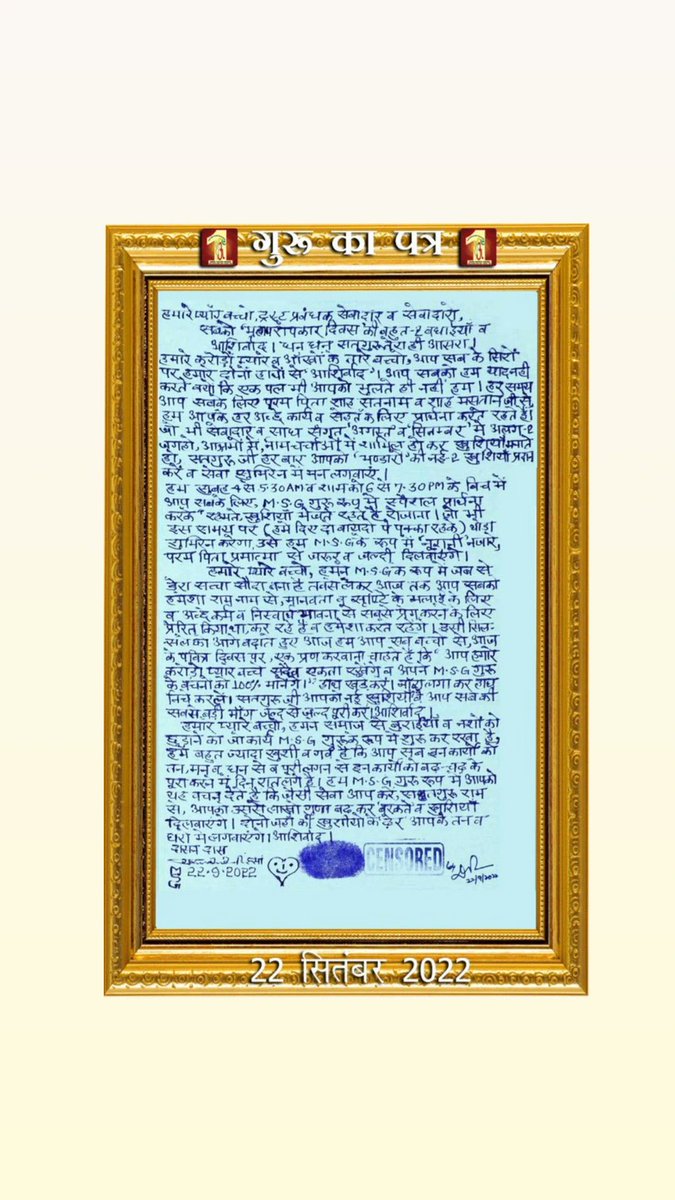 गुरु का पत्र
हमारे प्यारे बच्चो, ट्रस्ट प्रबंधक सेवादार व सेवादारो,
सबको "महापरोपकार दिवस की बहुत-2 बधाईयाँ व
आशिर्वाद"। "धन धन सतगुरु तेरा ही आसरा।
हमारे करोड़ों प्यारे व आँखों के तारे बच्चो, आप सब के सिरों
पर हमारे दोनों हाथों से "आशिर्वाद"। आप सबको हम याद नहीं
करते क्यों कि एक पल भी आपको भुलते ही नहीं हम। हर समय
आप सबके लिए परम पिता शाह सतनाम व शाह मस्तान जी से,
हम आपके हर अच्छे कार्य व सेहत के लिए प्रार्थना करते रहते हैं।
जो भी सेवादार व साध संगत "अगस्त" व "सितम्बर" में अलग-2
जगहों, आश्रमों में, नामचर्चाओं में शामिल हो कर खुशियाँ मनाते
हो, सतगुरु जी हर बार आपको "भण्डारों" की नई-2 खुशियाँ प्रदान
करें व सेवा सुमिरन में मन लगवाएं।
हम सुबह 4 से 5:30AM व शाम को 6 से 7:30PM के बिच में
आप सबके लिए, M.S.G गुरु रूप में स्पैशल प्रार्थना
करके रहमतें, खुशियाँ भेजते रहते हैं रोजाना। जो भी
इस समय पर (हमें दिए दो वायदों पे पक्का रहके) थोड़ा
सुमिरन करेगा, उसे हम M.S.G के रूप में "नूरानी नजारे,
परम पिता परमात्मा से जरूर व जल्दी दिलवाएंगे।
हमारे प्यारे बच्चो, हमने M.S.G के रूप में जब से
डेरा सच्चा सौदा बना है तब से लेकर आज तक आप सबको
हमेशा राम नाम से, मानवता व सृष्टि के भलाई के लिए
व अच्छे कर्म व निस्वार्थ भावना से सबसे प्रेम करने के लिए
प्रेरित किया था, कर रहे हैं व हमेशा करते रहेंगे। इसी सिल-
सिले को आगे बढ़ाते हुए आज हम आप सब बच्चों से, आज
के पवित्र दिवस पर, एक प्रण करवाना चाहते हैं कि "आप हमारे
करोड़ों प्यारे बच्चे सदैव एकता रखेंगे व अपने M.S.G गुरु
के वचनों को 100% मानेंगे।" हाथ खड़े करें। नारा लगा कर हाथ
निचे करलें। सतगुरु जी आपको नई खुशियाँ दें आप सबकी
सबसे बड़ी माँग जल्द से जल्द पूरी करें। आशिर्वाद।
हमारे प्यारे बच्चो, हमने समाज से बुराईयाँ व नशों को
छुड़ाने का जो कार्य M.S.G गुरु के रूप में शुरु कर रखा है,
हमें बहुत ज्यादा खुशी व गर्व है कि आप सब इन कार्यों को
तन, मन व धन से व पूरी लगन से इन कार्यों को बढ़-चढ़ के
पूरा करने में दिन रात लगे हैं। हम M.S.G गुरु रूप में आपको
यह वचन देते हैं कि जैसी सेवा आप करें, सतगुरु राम
से, आपको उससे लाखों गुणा बढ़ कर बरकतें व खुशियाँ
दिलवाएंगे। दोनों जहाँ की खुशीयों के ढेर आपके तन व
घरों में लगवाएंगे। आशिर्वाद।
दासन दास
MSG 22-9-2022
CENSORED
22/9/2022
22 सितंबर 2022